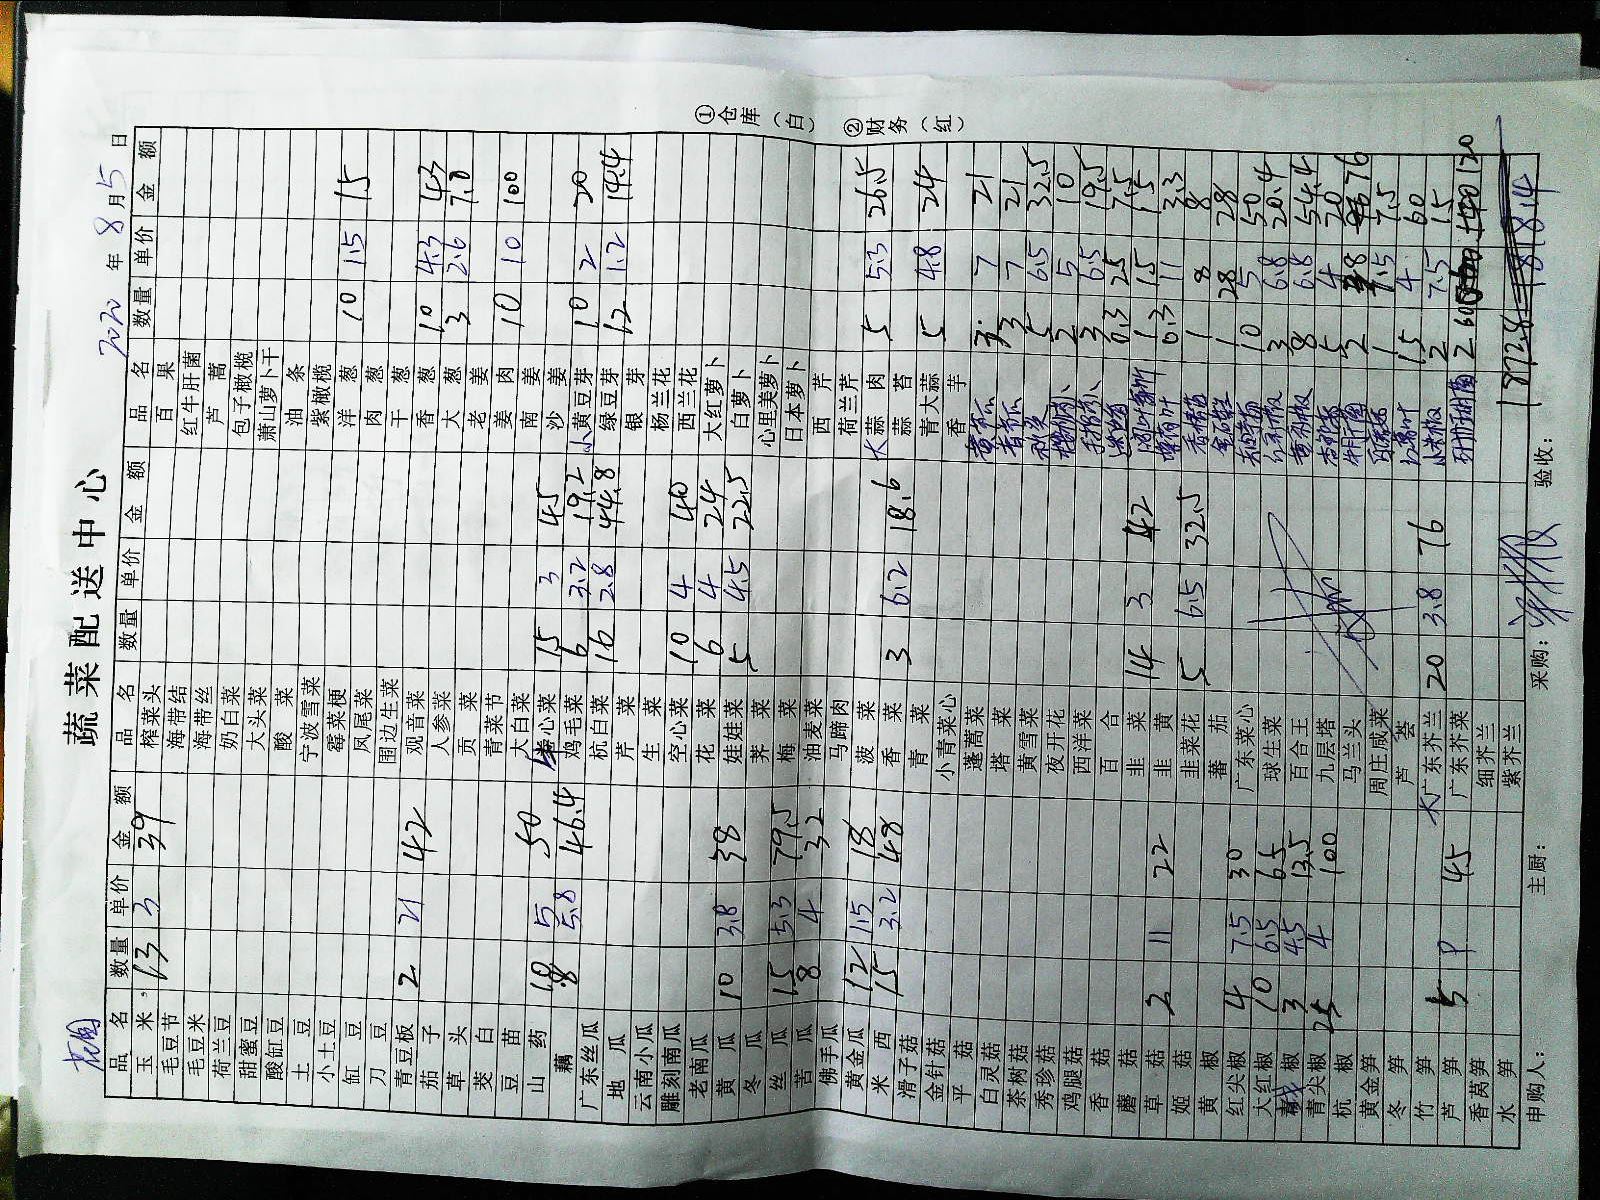 蔬菜配送中心
2020年8月5日
品名 数量 单价 金额 品名 数量 单价 金额 品名 数量 单价 金额
玉米 13 3 39 榨菜头 百果
毛豆节 海带结 红牛肝菌
毛豆米 海带丝 芦蒿
荷兰豆 奶白菜 包子橄榄
甜蜜豆 大头菜 萧山萝卜干
酸缸豆 酸菜 油条
土豆 宁波雪菜 紫橄榄
小土豆 霉菜梗 洋葱 10 1.5 15
缸豆 凤尾菜 肉葱
刀豆 围边生菜 干葱
青豆板 2 21 42 观音菜 香葱 10 4.3 43
茄子 人参菜 大葱 3 2.6 7.8
草头 贡菜 老姜
茭白 青菜节 姜肉 10 10 100
豆苗 大白菜 南姜
山药 10 5 50 卷心菜 15 3 45 沙姜
藕 8 5.8 46.4 鸡毛菜 6 3.2 19.2 小黄豆芽 10 2 20
广东丝瓜 杭白菜 16 2.8 44.8 绿豆芽 12 1.2 14.4
地瓜 芹菜 银芽
云南小瓜 生菜 杨兰花
雕刻南瓜 空心菜 10 4 40 西兰花
老南瓜 花菜 6 4 24 大红萝卜
黄瓜 10 3.8 38 娃娃菜 5 4.5 22.5 白萝卜
冬瓜 荠菜 心里美萝卜
丝瓜 15 5.3 79.5 梅菜 日本萝卜
苔瓜 8 4 32 油麦菜 西芹
佛手瓜 马蹄肉 荷兰芹
黄金瓜 12 1.5 18 菠菜 大蒜肉 5 5.3 26.5
米西 15 3.2 48 香菜 3 6.2 18.6 蒜苔
滑子菇 青菜 青大蒜 5 4.8 24
金针菇 小青菜心 香芋
平菇 蓬蒿菜 3 7 21
白灵菇 塔菜 3 7 21
茶树菇 黄雪菜 秋葵 5 6.5 32.5
秀珍菇 夜开花 2 5 10
鸡腿菇 西洋菜 3 6.5 19.5
香菇 百合 0.3 25 7.5
蘑菇 韭菜 14 3 42 1 15 15
草菇 2 11 22 韭黄 0.3 11 3.3
姬菇 韭菜花 5 6.5 32.5 1 8 8
黄椒 蕃茄 28 28
红尖椒 4 7.5 30 广东菜心 10 5 50
大红椒 10 6.5 65 球生菜 3 6.8 20.4
椒 3 4.5 13.5 百合王 8 6.8 54.4
青尖椒 25 4 100 九层塔 5 4 20
杭椒 马兰头 2 8 76
黄金笋 周庄咸菜 1 7.5 7.5
冬笋 芦荟 15 4 60
竹笋 大广东芥兰 20 3.8 76 小米椒 2 7.5 15
芦笋 5 9 45 广东芥菜 2 60 120
香莴笋 细芥兰
水笋 紫芥兰 1872.8 1818.4
申购人： 主厨： 采购： 验收：
①仓库（白） ②财务（红）